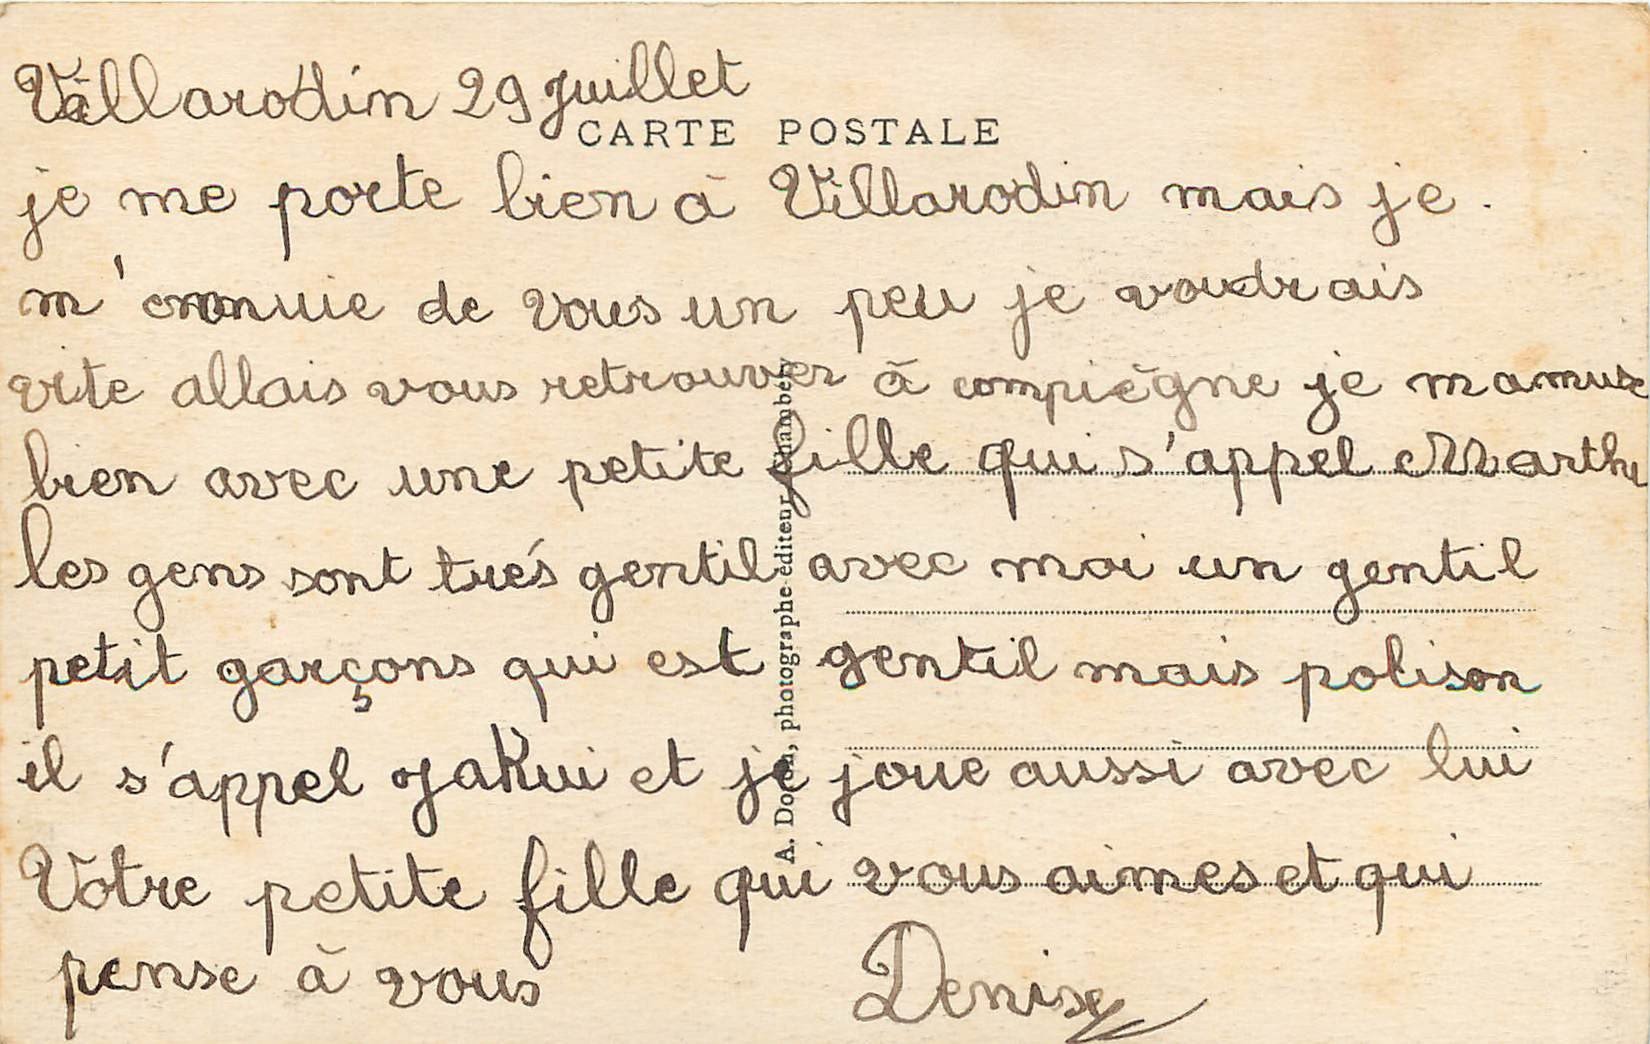 Villarodin 29 Juillet
CARTE POSTALE
je me porte bien à Villarodin mais je.
m'ennuie de vous un peu je voudrais
vite allais vous retrouver à compiègne je mamuse
bien avec une petite fille qui s'appel Marthe
les gens sont très gentil avec moi un gentil
petit garçons qui est gentil mais polison
il s'appel Jakui et je joue aussi avec lui
Votre petite fille qui vous aimes et qui
pense à vous
Denise
photographe éditeur, Chambéry